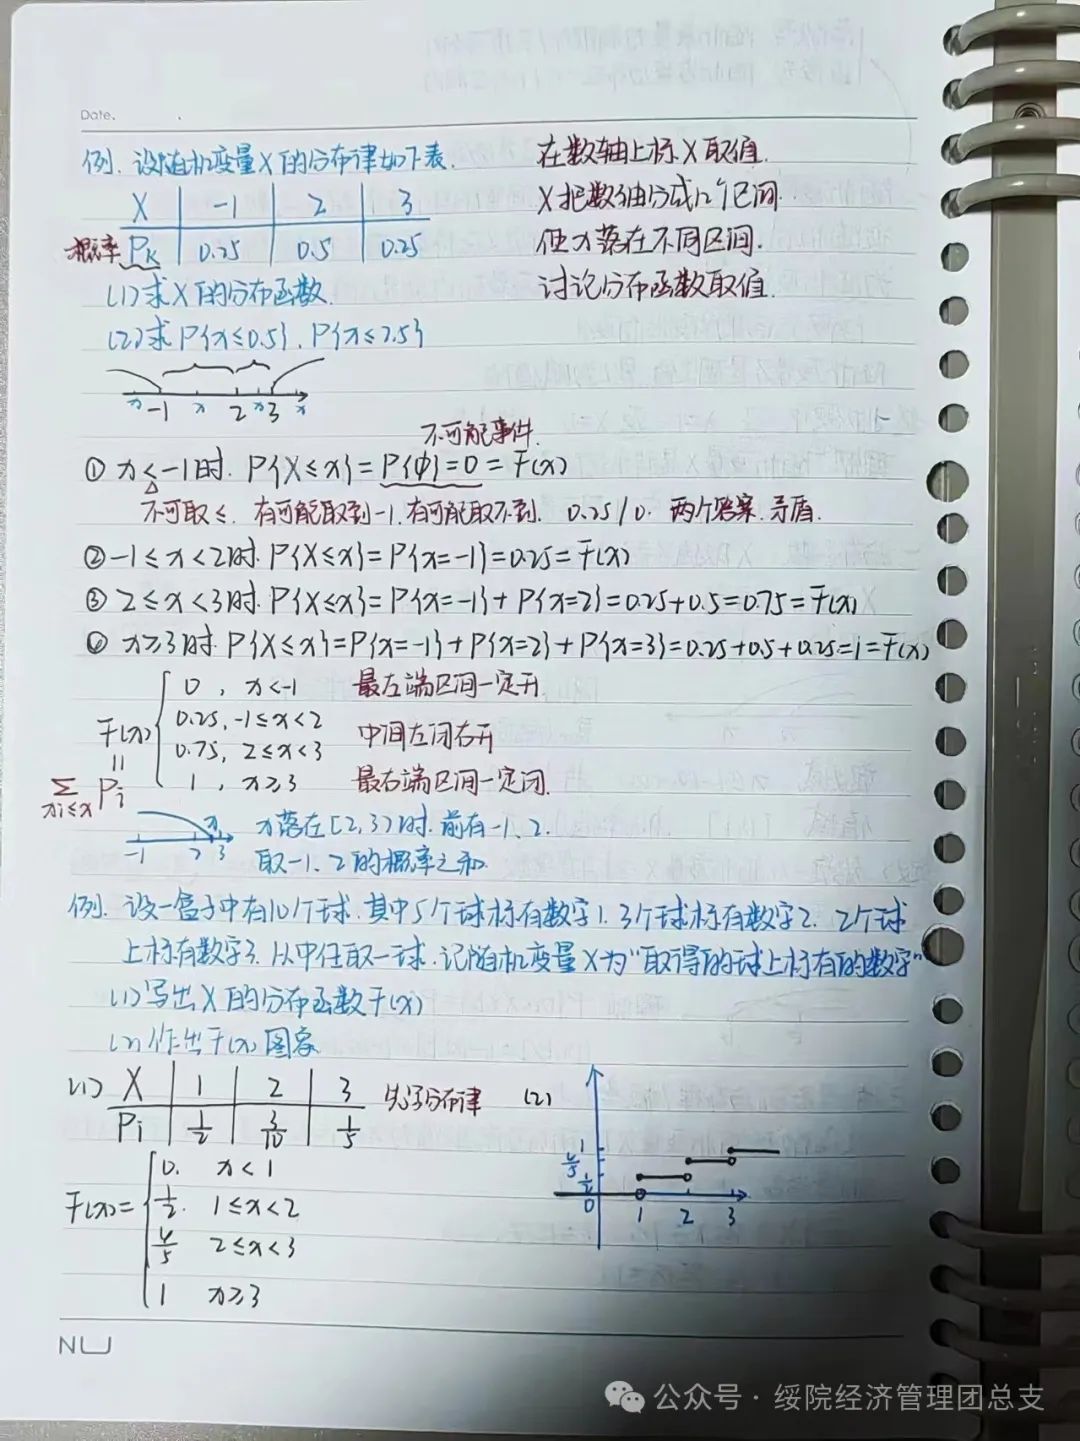 Date.
例. 设随机变量X的分布律如下表.
X -1 2 3
概率 Pk 0.25 0.5 0.25
(1)求X的分布函数.
(2)求P{x≤0.5}, P{x≤2.5}
在数轴上标X取值.
X把数轴分成几个区间.
但x落在不同区间.
讨论分布函数取值.
x -1 x 2 x 3 x
不可能事件.
① x<-1时. P{X≤x}=P{φ}=0=F(x)
不可取≤. 有可能取到-1.有可能取不到. 0.25/0. 两个答案.矛盾.
② -1≤x<2时. P{X≤x}=P{x=-1}=0.25=F(x)
③ 2≤x<3时. P{X≤x}=P{x=-1}+P{x=2}=0.25+0.5=0.75=F(x)
④ x≥3时. P{X≤x}=P{x=-1}+P{x=2}+P{x=3}=0.25+0.5+0.25=1=F(x)
0, x<-1 最左端区间一定开.
F(x) 0.25, -1≤x<2 中间左闭右开
0.75, 2≤x<3
= ∑xi≤x Pi 1, x≥3 最右端区间一定闭.
-1 2 x 3
x落在[2,3)时.前有-1、2.
取-1、2的概率之和.
例. 设一盒子中有10个球.其中5个球标有数字1. 3个球标有数字2. 2个球
上标有数字3. 从中任取一球.记随机变量X为"取得的球上标有的数字"
(1)写出X的分布函数F(x)
(2)作出F(x)图象
(1) X 1 2 3 先写分布律
Pi 1/2 3/10 1/5
F(x)= 0. x<1
1/2. 1≤x<2
4/5 2≤x<3
1 x≥3
(2)
1
4/5
1/2
0 1 2 3
NU
公众号·绥院经济管理团总支